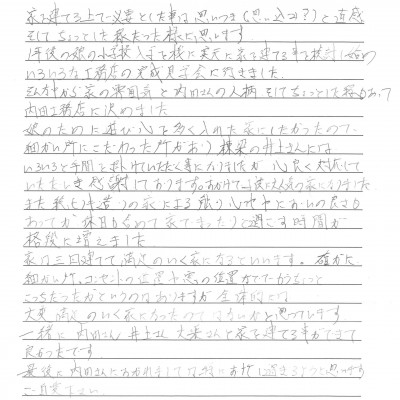 家を建てる上で必要とした事は思いつき(思い込み?)と直感
そしてちょっとした縁だった様に思います。
1年後の娘の小学校入学を機に実家に家を建てる事を検討し始め
いろいろな工務店の完成見学会に行きました。
そんな中から家の雰囲気と内田さんの人柄そしてちょっとした縁があって
内田工務店に決めました
娘のために遊び心を多く入れた家にしたかったので
細かい所にこだわった所があり棟梁の井上さんには
いろいろと手間を掛けていただく事になりましたが心良く対応して
いただき感謝しております。おかげで
また我も(木造り)の家による
あってか休日も含めて家でまったりと過ごす時間が
格段に増えました
家は三回建てて満足のいく家になるといいます。確かに
細かい所、コンセントの位置や窓の位置がでもうちょっと
こっちだったかというのはありますが全体的には
大変満足のいく家になったのではないかと思っています
一緒に内田さん井上さん大栄さんと家を建てる事ができて
良かったです。
最後に内田さんにおかれましては